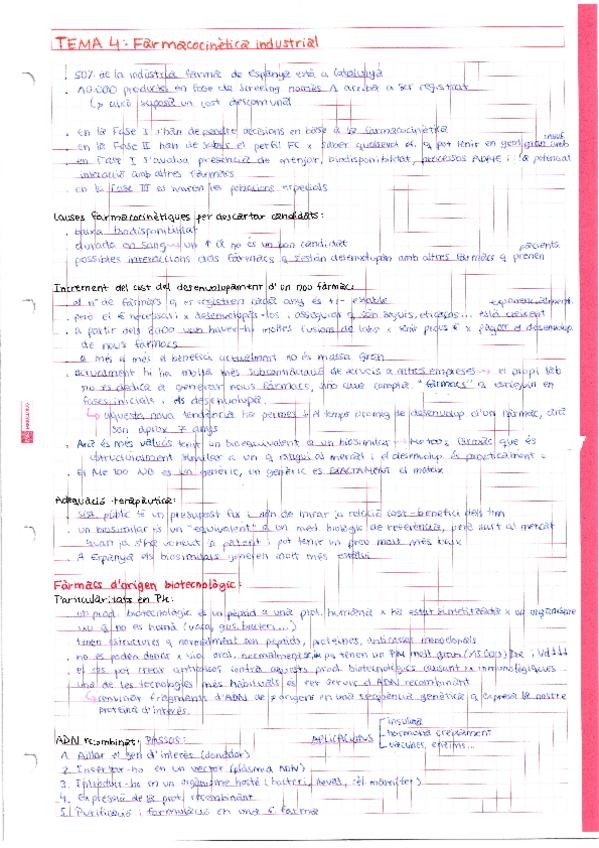 TEMA 4: Farmacocinètica industrial
. 50% de la indústria farma de Espanya està a Catalunya
. 10.000 productes en fase de screening només 1 arriba a ser registrat
↳ això suposa un cost descomunal
. en la Fase I s'han de prendre decisions en base a la farmacocinètica
. en la Fase II han de saber el perfil FC x saber quin
en Fase I s'avalua presència de menjar, biodisponibilitat, processos ADME i la potencial
interacció amb altres fàrmacs
. en la fase III es miren les poblacions especials
Causes farmacocinètiques per descartar candidats:
. baixa biodisponibilitat
. durada en sang, un t ½ no és un bon candidat
. possibles interaccions dels fàrmacs q s'estan desenvolupan amb altres fàrmacs q prenen pacients
Increment del cost del desenvolupament d'un nou fàrmac:
. el nº de fàrmacs q es registren cada any és +/- estable
. però el € necessari x desenvolupar-los i assegurar q són segurs, eficaços... està creixent exponencialment
. a partir dels 2000 van haver-hi moltes fusions de labs x tenir prous € x pagar el desenvolup
de nous fàrmacs
a més a més el benefici actualment no és massa gran
. actualment hi ha molta més subcontractació de serveis a altres empreses → el propi lab
no es dedica a generar nous fàrmacs, sinó que compra "fàrmacs" q estiguin en
fases inicials i els desenvolupa.
↳ aquesta nova tendència ha permès ↓ el temps promig de desenvolup d'un fàrmac, ara
són aprox 7 anys
. Ara és més valuós tenir un bioequivalent o un biosimilar. Me too: fàrmac que és
estructuralment similar a un q ja sigui al mercat i el desenvolup. és pràcticament =
. El Me too NO és un genèric, un genèric és EXACTAMENT el mateix
Adequació terapèutica:
. sist. públic té un pressupost fix i han de mirar la relació cost-benefici dels
. un biosimilar és un "equivalent" a un med. biològic de referència, però surt al mercat
quan ja s'ha vençut la patent i pot tenir un preu molt més baix
. A Espanya els biosimilars generen molt més estalvi
Fàrmacs d'origen biotecnològic:
Particularitats en PK:
. un prod. biotecnològic és un pèptid o una prot. humana x ha estat sintetitzada x un organisme
viu q no és humà (vaca, gus, bacteri...)
. tenen estructures q normalment són pèptids, proteïnes, anticossos monoclonals
. no es poden donar x via oral, normalment, ja q tenen un PM molt gran i Vd ↓↓↓
. el cos pot crear anticossos contra aquests prod. biotecnològics causant rx immunològiques
. una de les tecnologies més habituals és fer servir el ADN recombinant
↳ combinar fragments d'ADN de ≠ orígens en una seqüència genètica q expressa la nostra
proteïna d'interès.
ADN recombinat: PASSOS: APLICACIONS
insulina
hormona creixement
vacunes, enzims...
1. Aïllar el gen d'interès (donador)
2. Insertar-ho en un vector (plàsmid ADN)
3. Introduir-ho en un organisme hoste (bacteri, llevat, cèl. mamífer)
4. Expressió de la prot. recombinant
5. Purificació i formulació en una F. Farma